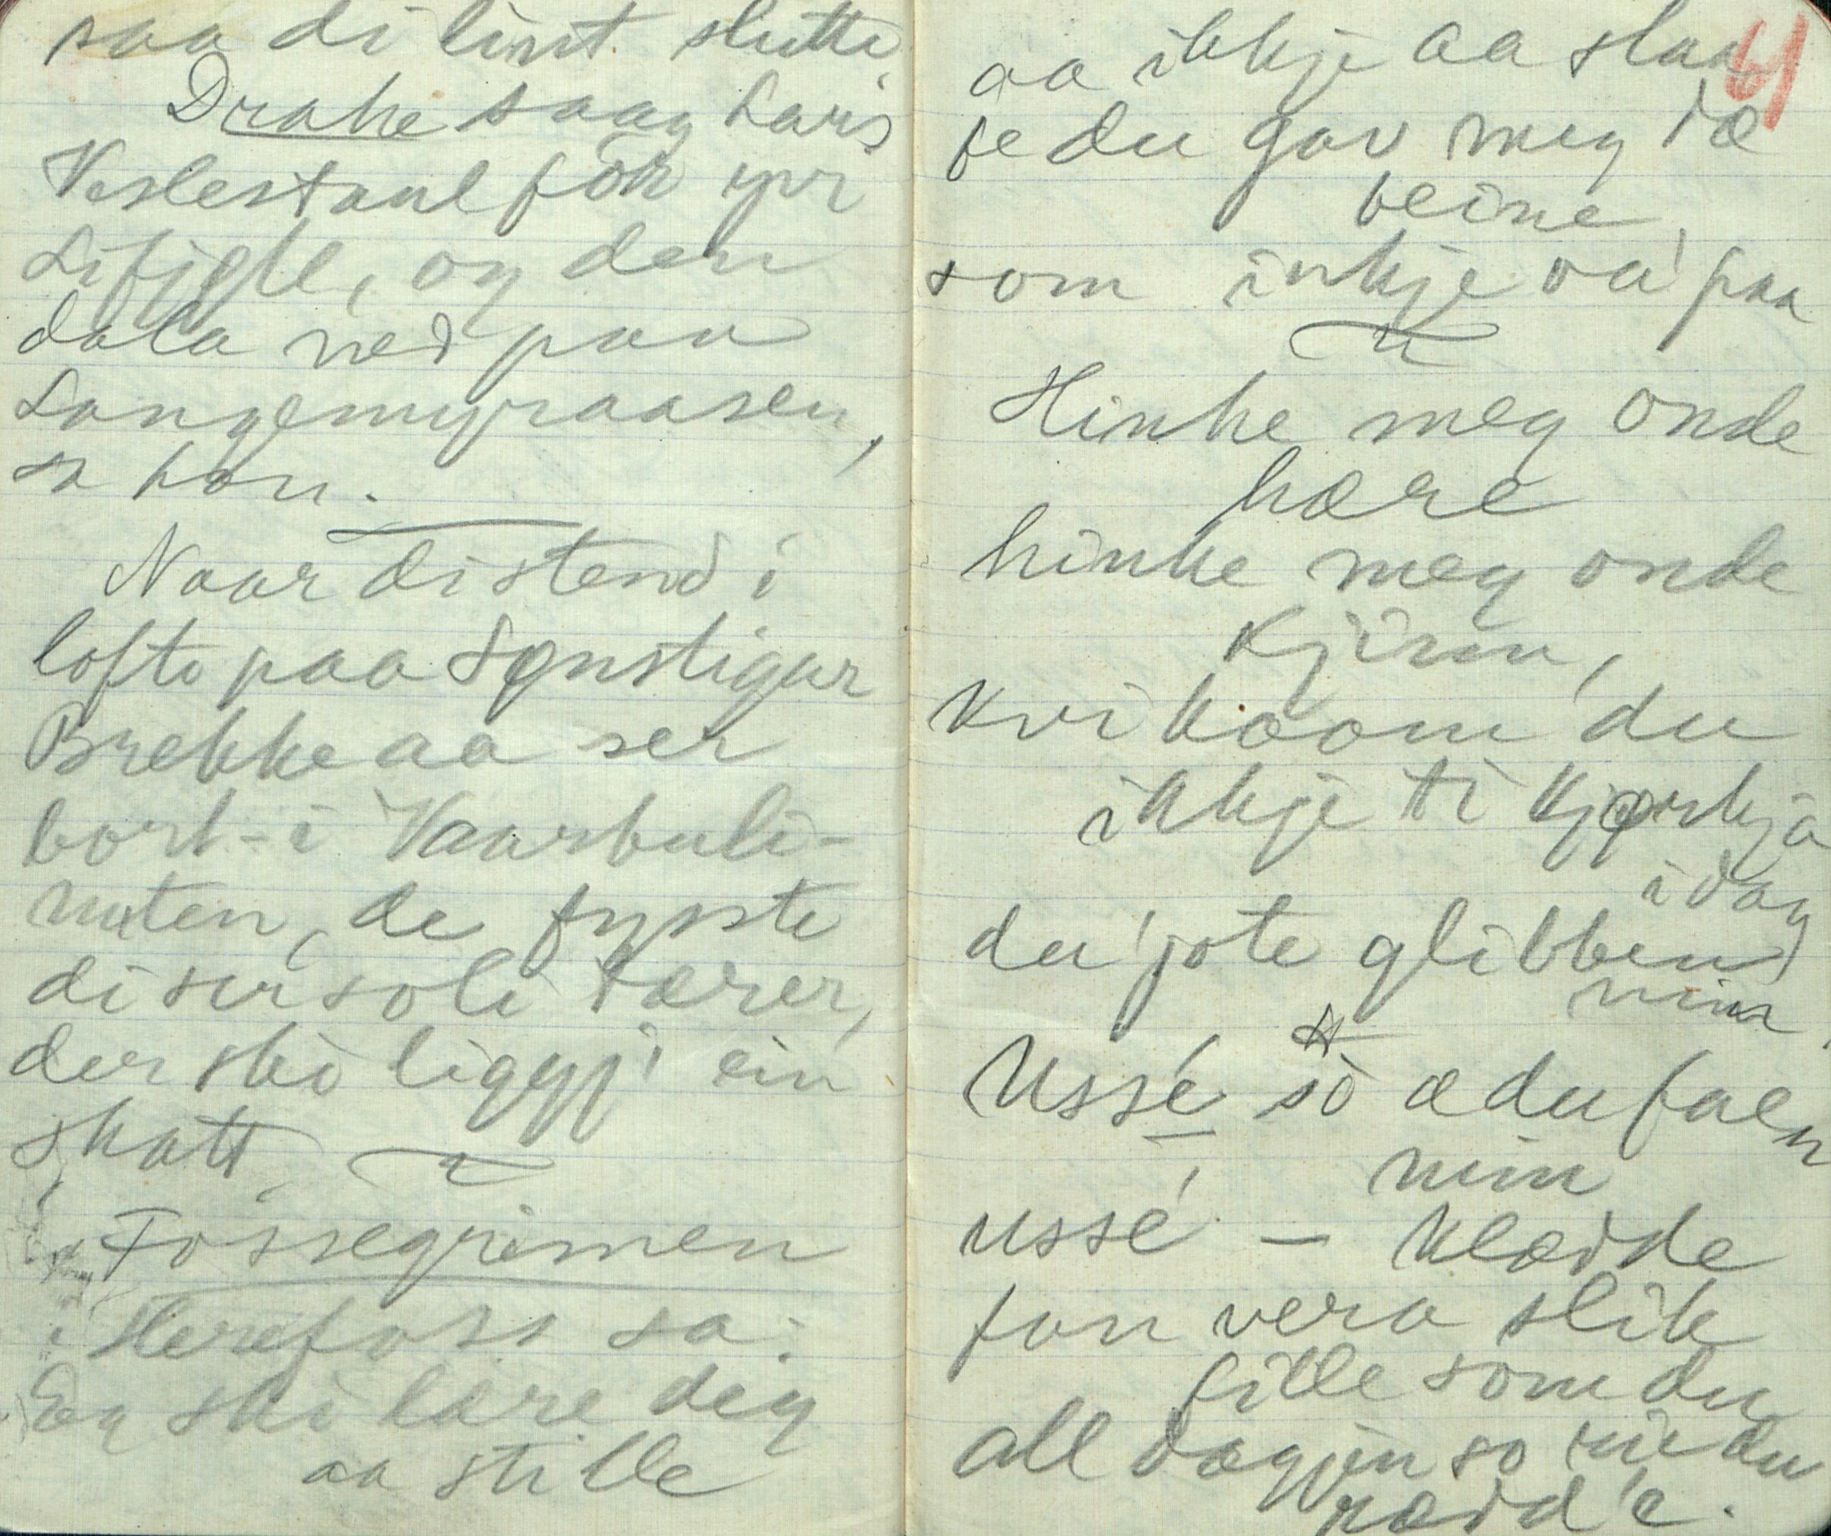 saa di lint slutte
Drake saag Laris
Veslestaul fòr yvi
Lifjell, og den
data ned paa
Langemyraasen,
sa han.
Naar di stend i
lofte paa Synstigar
Brekke aa ser
bort-i Vaarbuli-
nuten, de fysste
di ser soli tærer,
der ski liggji ein
skatt
Fossegrimen
i Herefoss sa:
Eg ski lære deg
aa stille
61
aa ikkje aa slaa
fe du gav meg dæ
beine
som inkje va' paa
Hinke meg onde
hære
hinke meg onde
Kjinn,
Kvi kaam du
ikkje ti kjørkja
idag
du jote glibben
min
Ussé so æ du faen
min
ussé – klædde
fan vera slik
lille som du
all dagjen so rie du
rædd'e.